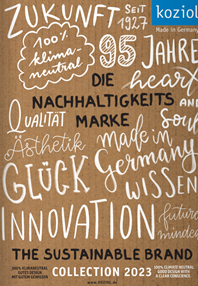 ZUKUNFT SEIT 1927
koziol
Made in Germany
100% klima-neutral
95 JAHRE
DIE heart
NACHHALTIGKEITS and
QUALITÄT MARKE soul
Ästhetik made in
GLÜCK Germany
WISSEN
INNOVATION future
minded
THE SUSTAINABLE BRAND
100% KLIMANEUTRAL
GUTES DESIGN
MIT GUTEM GEWISSEN
COLLECTION 2023
100% CLIMATE NEUTRAL
GOOD DESIGN WITH
A CLEAN CONSCIENCE
WWW.KOZIOL.DE